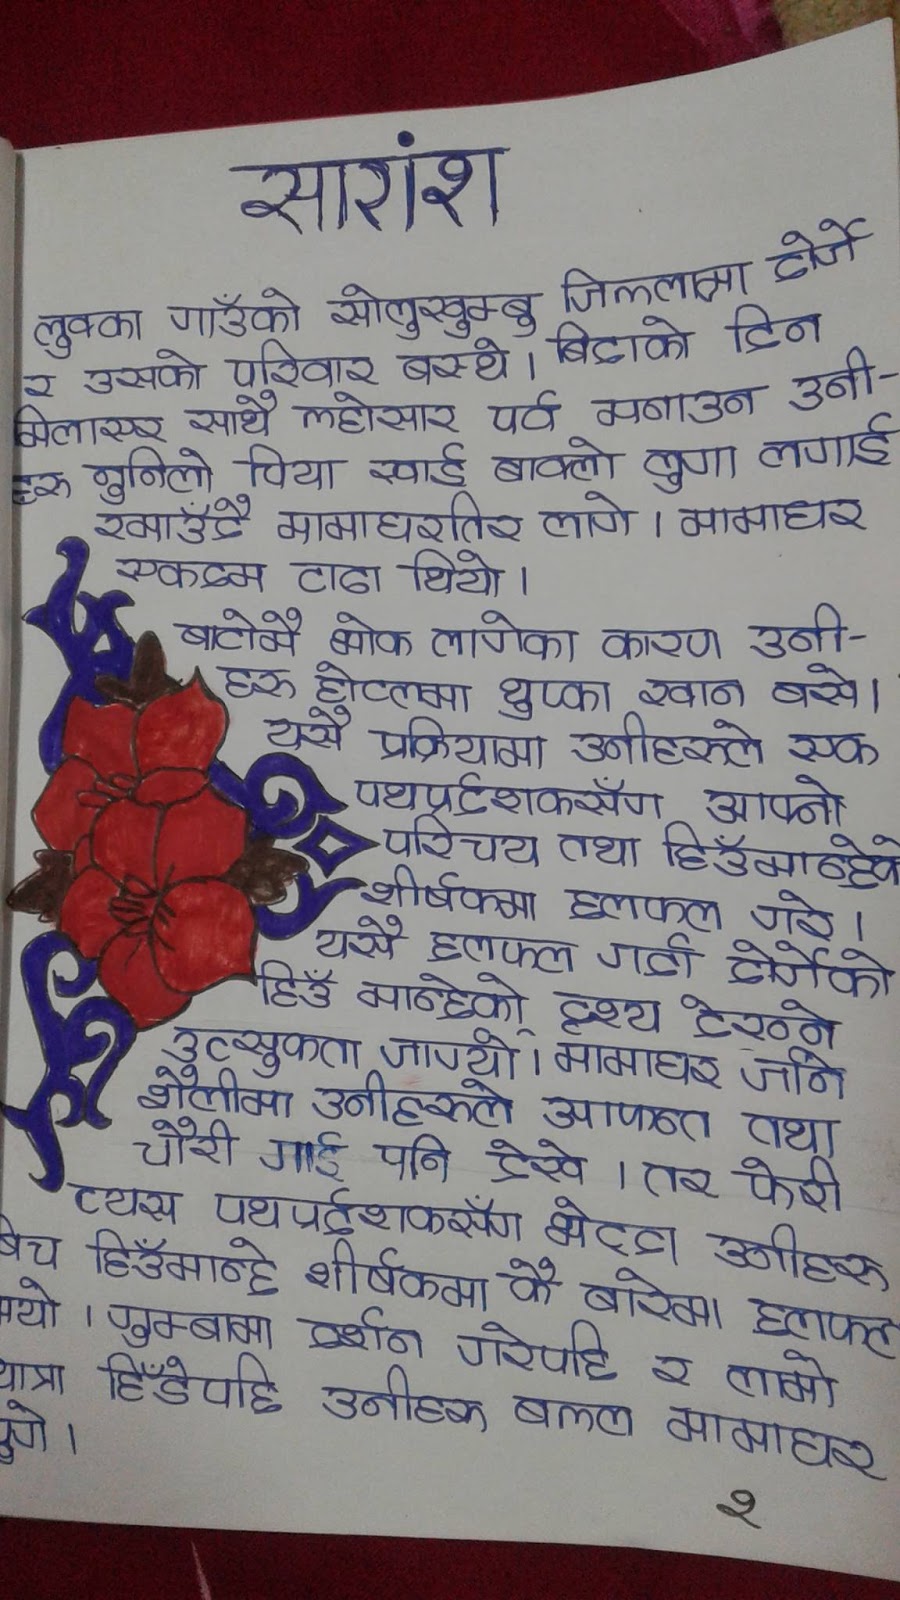 सारांश
लुक्का गाउँको सोलुखुम्बु जिल्लामा दोर्जे
र उसको परिवार बस्थे। बिदाको दिन
मिलाएर साथै ल्होसार पर्व मनाउन उनी-
हरू नुनिलो चिया खाई बाक्लो लुगा लगाई
रमाउँदै मामाघरतिर लागे। मामाघर
एकदम टाढा थियो।
बाटोमै भोक लागेका कारण उनी-
हरू होटलमा थुप्का खान बसे।
यसै प्रक्रियामा उनीहरूले एक
पथप्रर्दशकसँग आफ्नो
परिचय तथा हिउँमान्छेको
शीर्षकमा छलफल गरे।
यसै छलफल गर्दा दोर्जेको
हिउँ मान्छेको दृश्य देख्ने
उत्सुकता जाग्यो। मामाघर जाने
शैलीमा उनीहरूले आफन्त तथा
चौंरी गाई पनि देखे। तर फेरी
त्यस पथप्रर्दशकसँग भेट्दा उनीहरू
बिच हिउँमान्छे शीर्षकमा कै बारेमा छलफल
भयो। गुम्बामा दर्शन गरेपछि र लामो
यात्रा हिँडेपछि उनीहरू बल्ल मामाघर
पुगे।
२